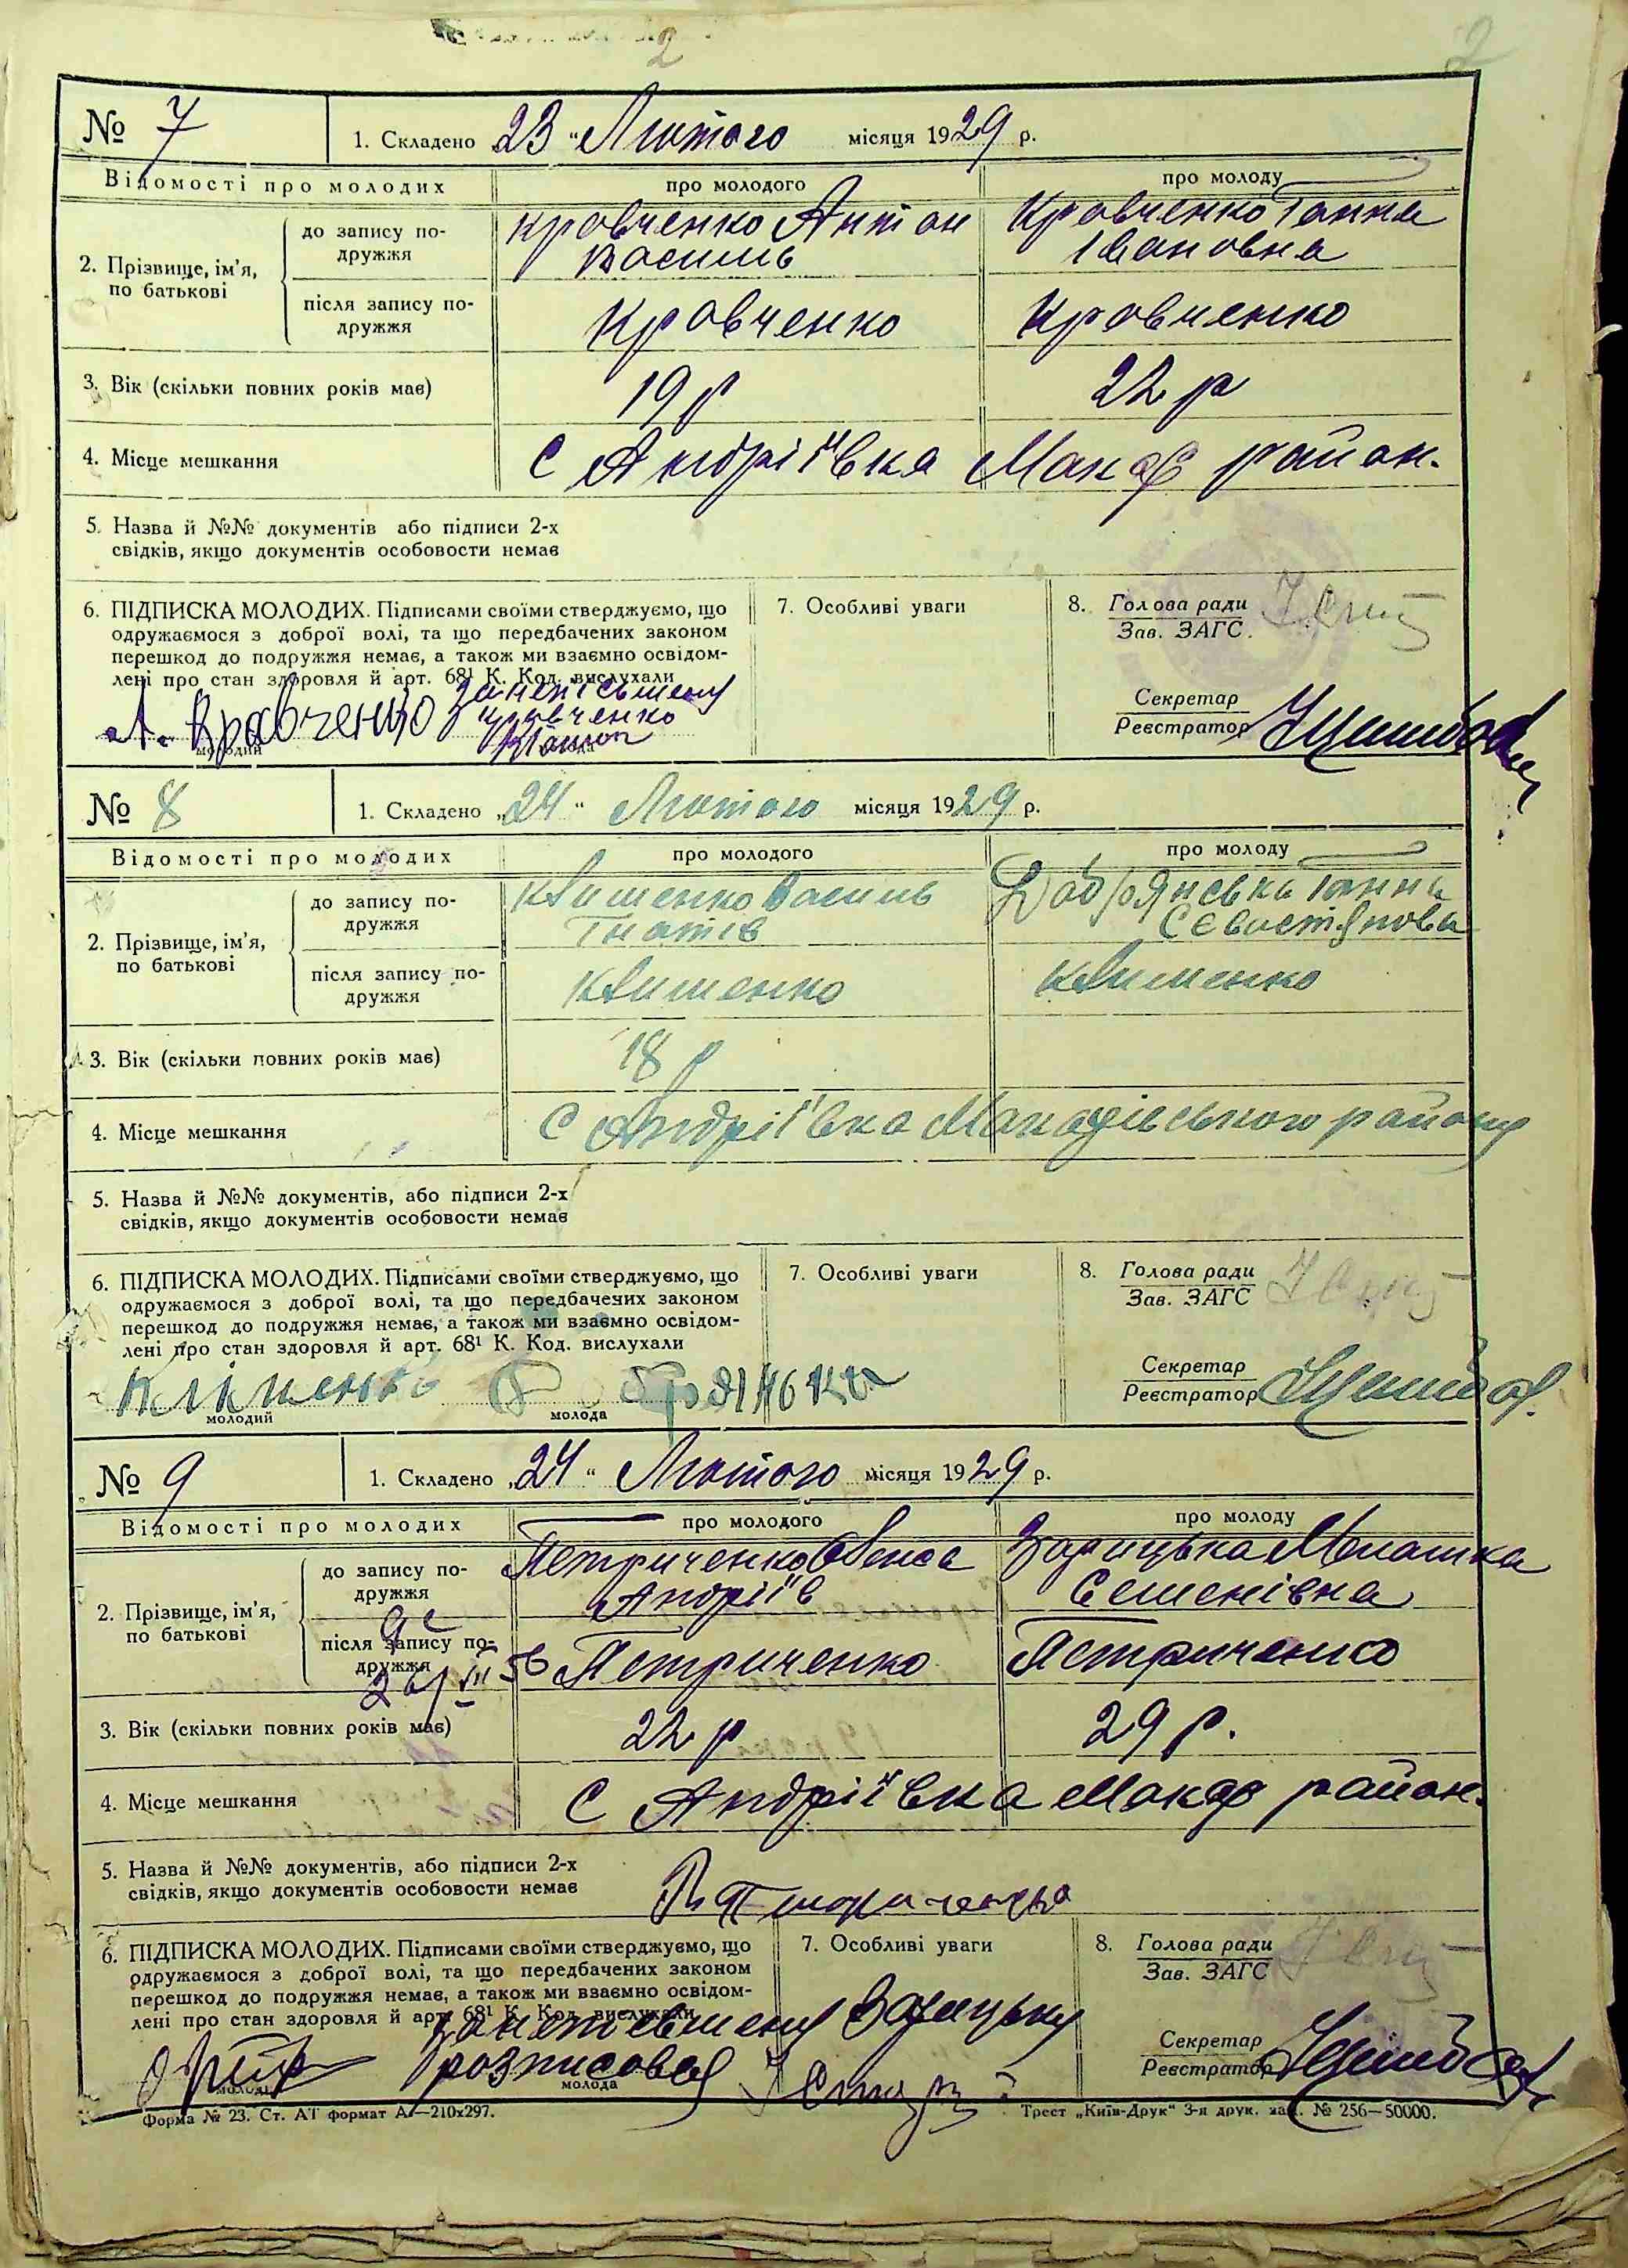 2
2
№ 7
1. Складено „23 “ Лютого місяця 1929 р.
Відомості про молодих
про молодого
про молоду
2. Прізвище, ім’я, по батькові
до запису подружжя
Кравченко Антон
Василь
Кравченко Ганна
Івановна
після запису подружжя
Кравченко
Кравченко
3. Вік (скільки повних років має)
19 р
22 р
4. Місце мешкання
С Андріївка Макар район.
5. Назва й №№ документів або підписи 2-х
свідків, якщо документів особовости немає
6. ПІДПИСКА МОЛОДИХ. Підписами своїми стверджуємо, що
одружаємося з доброї волі, та що передбачених законом
перешкод до подружжя немає, а також ми взаємно освідом-
лені про стан здоровля й арт. 68¹ К. Код. вислухали
А. Кравченко
за неписьмену
Кравченко
молодий
молода
7. Особливі уваги
8. Голова ради
Зав. ЗАГС.
Секретар
Реєстратор
№ 8
1. Складено „24“ Лютого місяця 1929 р.
Відомості про молодих
про молодого
про молоду
2. Прізвище, ім’я,
по батькові
до запису по-
дружжя
Клименко Василь
Гнатів
Добрянська Ганна
Севастянова
після запису по-
дружжя
Клименко
Клименко
3. Вік (скільки повних років має)
18 р
4. Місце мешкання
С Андріївка Макарівського району
5. Назва й №№ документів, або підписи 2-х
свідків, якщо документів особовости немає
6. ПІДПИСКА МОЛОДИХ. Підписами своїми стверджуємо, що
одружаємося з доброї волі, та що передбачених законом
перешкод до подружжя немає, а також ми взаємно освідом-
лені про стан здоровля й арт. 68¹ К. Код. вислухали
Кліменко
молодий
молода
7. Особливі уваги
8. Голова ради
Зав. ЗАГС
Секретар
Реєстратор
№ 9
1. Складено „24“ Лютого місяця 1929 р.
Відомості про молодих
про молодого
про молоду
2. Прізвище, ім’я,
по батькові
до запису по-
дружжя
Петриченко Овенас
Андріїв
Зарицька Мелашка
Семенівна
після запису по-
дружжя
Петриченко
Петриченко
3. Вік (скільки повних років має)
22 р
29 р.
4. Місце мешкання
С Андріївка Макар район.
5. Назва й №№ документів, або підписи 2-х
свідків, якщо документів особовости немає
6. ПІДПИСКА МОЛОДИХ. Підписами своїми стверджуємо, що
одружаємося з доброї волі, та що передбачених законом
перешкод до подружжя немає, а також ми взаємно освідом-
лені про стан здоровля й арт. 68¹ К. Код. вислухали
за неписьмену Зарицьку
розписовся
молодий
молода
7. Особливі уваги
8. Голова ради
Зав. ЗАГС
Секретар
Реєстратор
Форма № 23. Ст. АТ формат А₄—210x297.
Трест „Київ-Друк“ 3-я друк. зам. № 256—50000.